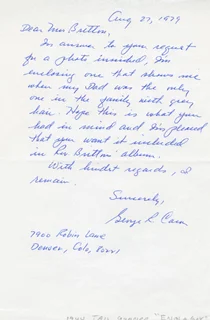 Aug 27, 1979
Dear Mrs Bretton,
In answer to your request
for a photo unsigned, I'm
enclosing one that shows me
when my Dad was the only
one in the family with gray
hair. Hope this is what you
had in mind and I'm pleased
that you want it included
in her Bretton album.
With kindest regards, I
remain.
Sincerely,
George R
7900 Robin Lane
Denver, Colo, 80221